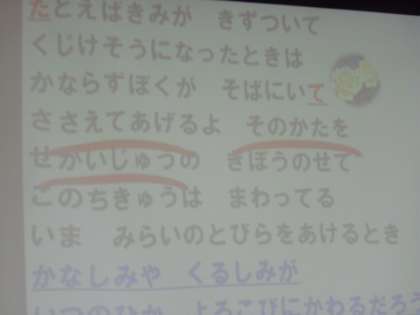 たとえばきみが　きずついて
くじけそうになったときは
かならずぼくが　そばにいて
ささえてあげるよ　そのかたを
せかいじゅうの　きぼうのせて
このちきゅうは　まわってる
いま　みらいのとびらをあけるとき
かなしみや　くるしみが
いつのひか　よろこびにかわるだろう